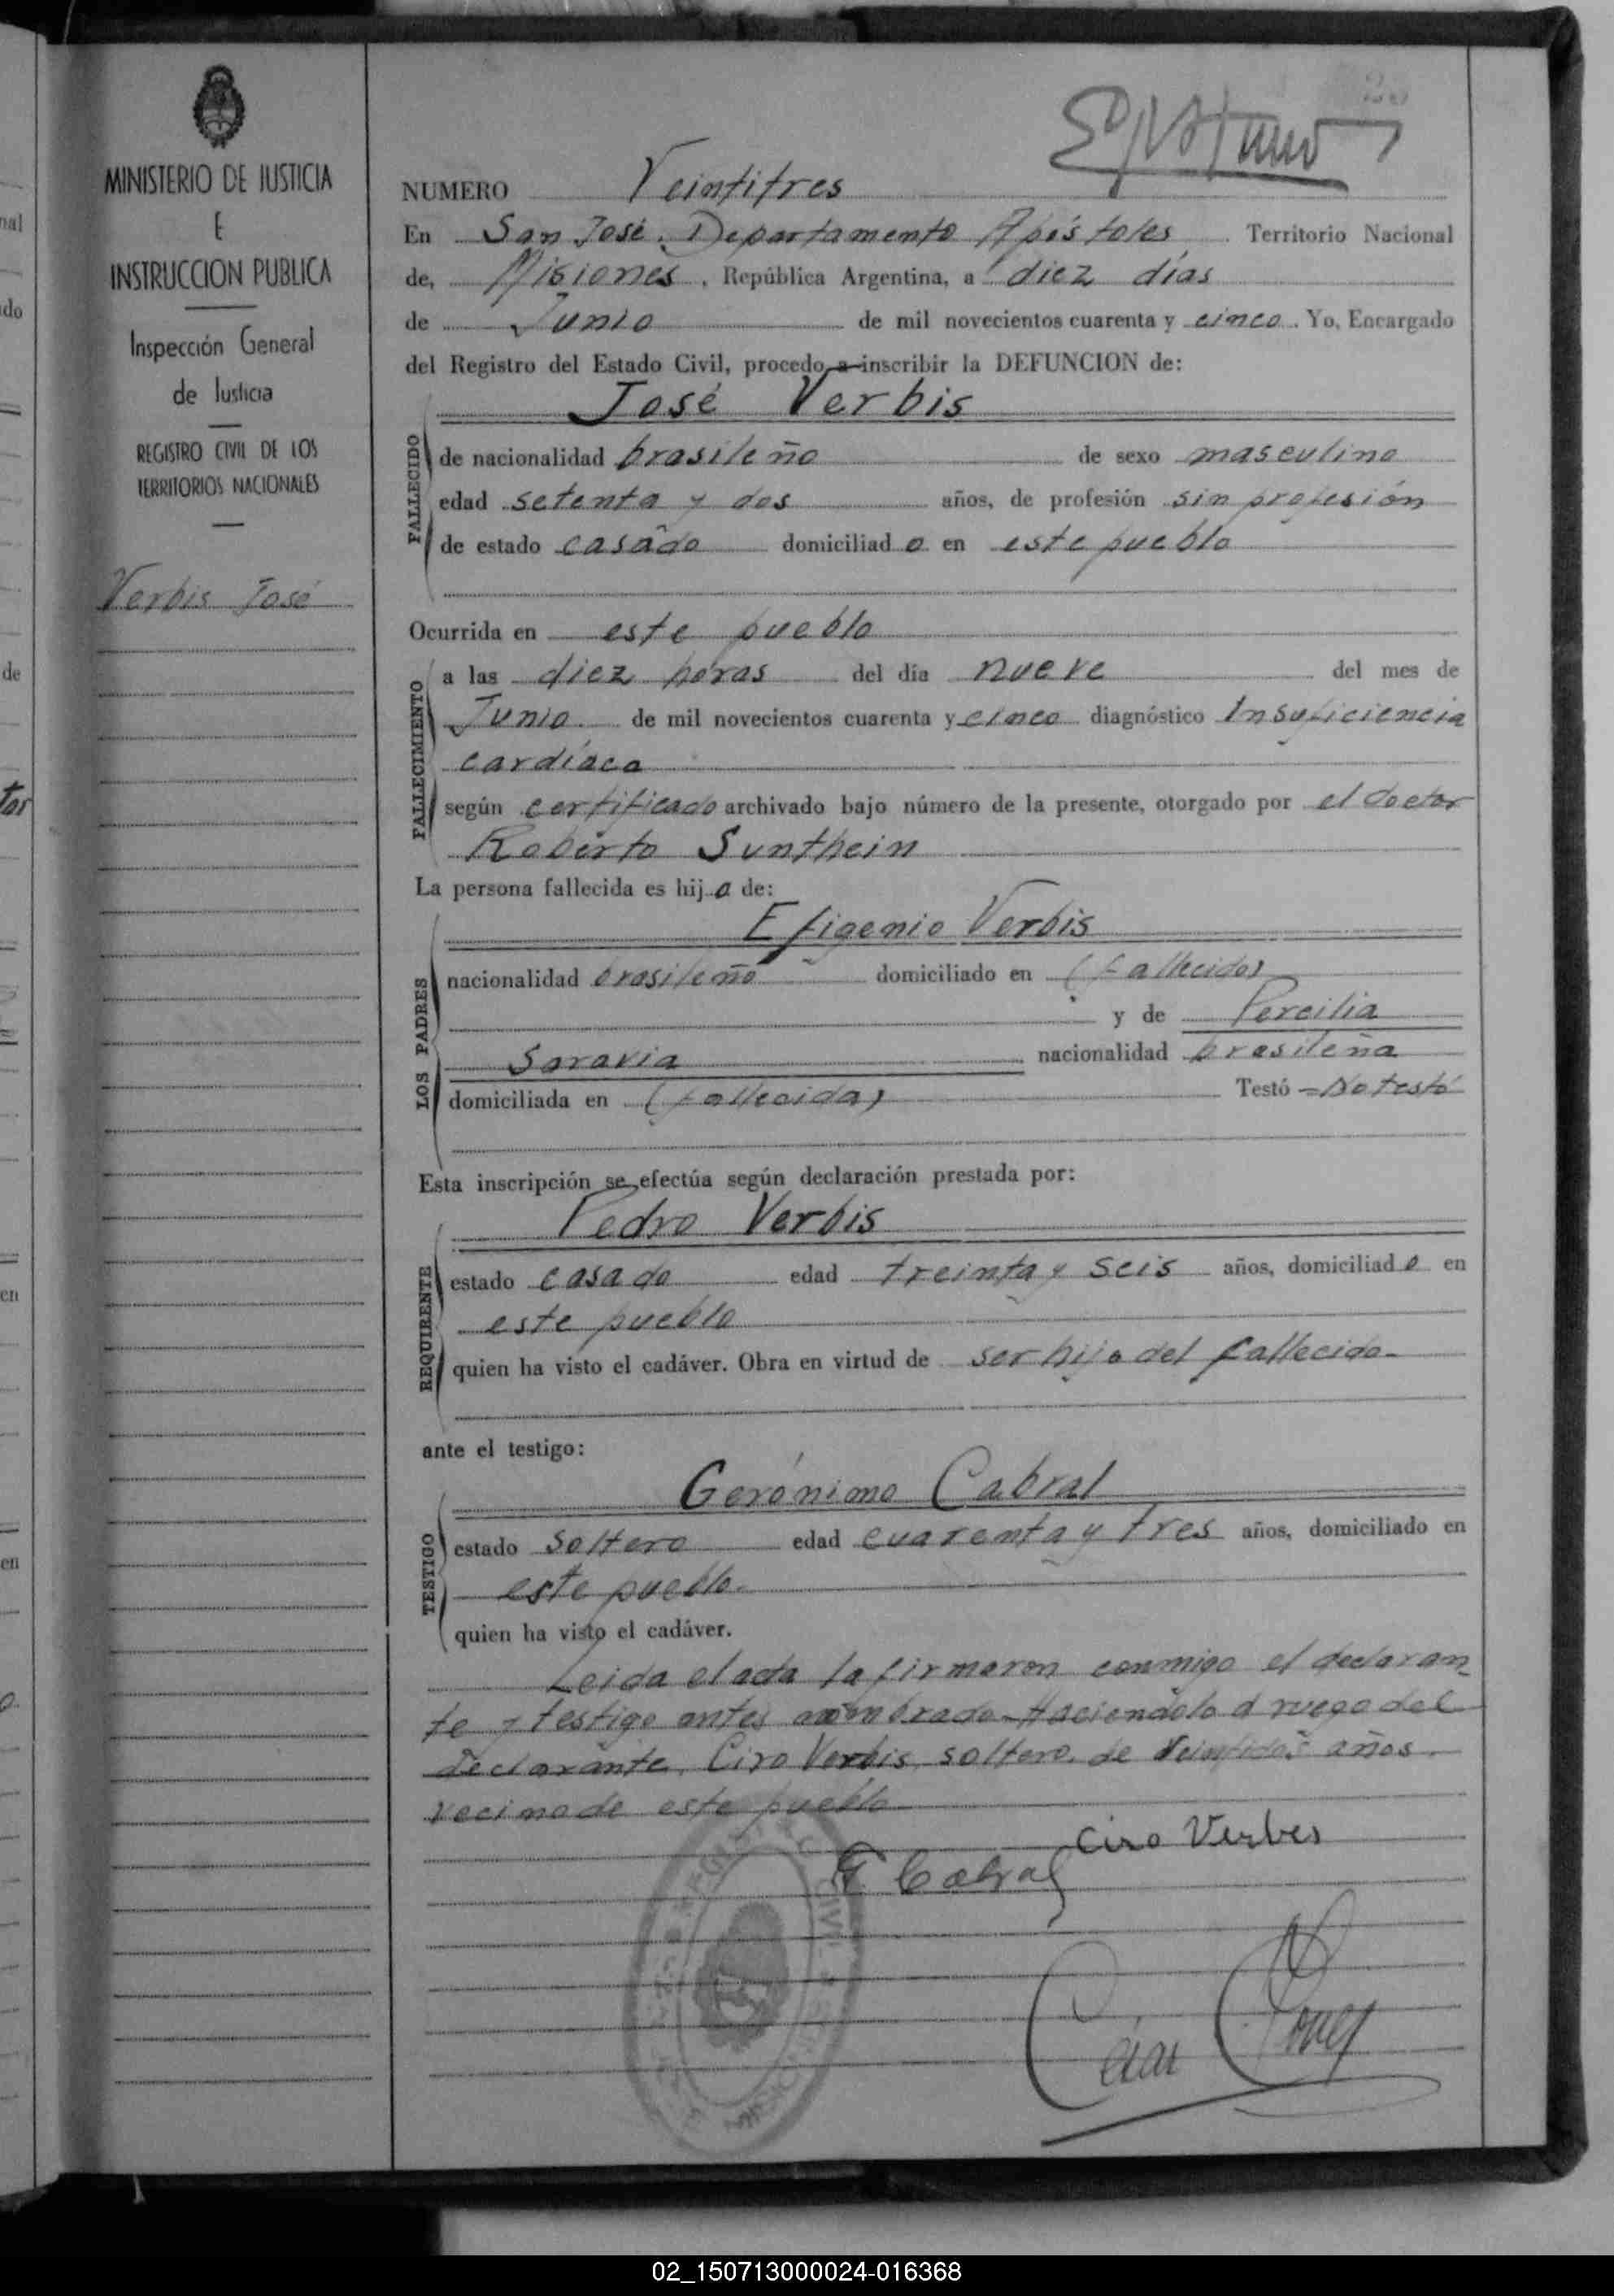 MINISTERIO DE JUSTICIA
E
INSTRUCCION PUBLICA
Inspección General
de Justicia
REGISTRO CIVIL DE LOS
TERRITORIOS NACIONALES
Verbis José
NUMERO Veintitres
En San José. Departamento Apóstoles. Territorio Nacional
de, Misiones, República Argentina, a diez días
de Junio de mil novecientos cuarenta y cinco. Yo, Encargado
del Registro del Estado Civil, procedo a inscribir la DEFUNCION de:
José Verbis
FALLECIDO
de nacionalidad brasileño de sexo masculino
edad setenta y dos años, de profesión sin profesión
de estado casado domiciliado en este pueblo
Ocurrida en este pueblo
FALLECIMIENTO
a las diez horas del día nueve del mes de
Junio de mil novecientos cuarenta y cinco diagnóstico Insuficiencia
cardíaca
según certificado archivado bajo número de la presente, otorgado por el doctor
Roberto Sunthein
La persona fallecida es hijo de:
LOS PADRES
Efigenio Verbis
nacionalidad brasileño domiciliado en (fallecido)
y de Percilia
Saravia nacionalidad brasileña
domiciliada en (fallecida) Testó =No testó
Esta inscripción se efectúa según declaración prestada por:
REQUIRENTE
Pedro Verbis
estado casado edad treinta y seis años, domiciliado en
este pueblo
quien ha visto el cadáver. Obra en virtud de ser hijo del fallecido.
ante el testigo:
TESTIGO
Gerónimo Cabral
estado soltero edad cuarenta y tres años, domiciliado en
este pueblo.
quien ha visto el cadáver.
Leida el acta la firmaron conmigo el declaran
te y testigo antes nombrado-Haciendolo a ruego del
declarante, Ciro Verbis, soltero, de veintidos años
vecino de este pueblo
Ciro Verbes
G Cabral
02_150713000024-016368